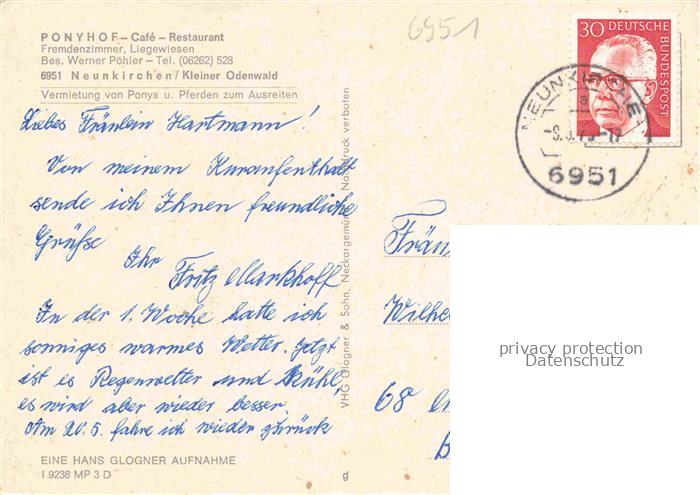 PONYHOF – Café – Restaurant
Fremdenzimmer, Liegewiesen
Bes. Werner Pöhler – Tel. (06262) 528
6951 Neunkirchen/Kleiner Odenwald
Vermietung von Ponys u. Pferden zum Ausreiten
6951
30 DEUTSCHE
BUNDESPOST
NEUNKIRCHEN
a
6951
Liebes Fräulein Hartmann!
Von meinem Kuraufenthalt
sende ich Ihnen freundliche
Grüße
Ihr
Fritz Markhoff
In der 1. Woche hatte ich
sonniges warmes Wetter. Jetzt
ist es Regenwetter und kühl,
es wird aber wieder besser.
Am 20. 5. fahre ich wieder zurück
EINE HANS GLOGNER AUFNAHME
I 9238 MP 3 D
g
VHG Glogner & Sohn, Neckargemünd Nachdruck verboten
Fräu
Wilhe
68
privacy protection
Datenschutz